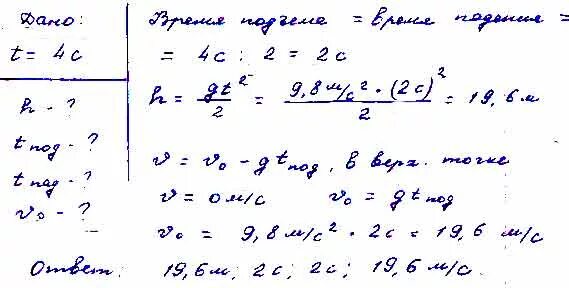 Дано:
t = 4с
h - ?
t под - ?
t пад - ?
v₀ - ?
Время подъема = время падения =
= 4с : 2 = 2с
h = gt²/2 = 9,8 м/с² · (2с)²/2 = 19,6 м
v = v₀ - gt под, в верх. точке
v = 0 м/с v₀ = gt под
v₀ = 9,8 м/с² · 2с = 19,6 м/с
Ответ: 19,6м; 2с; 2с; 19,6 м/с.